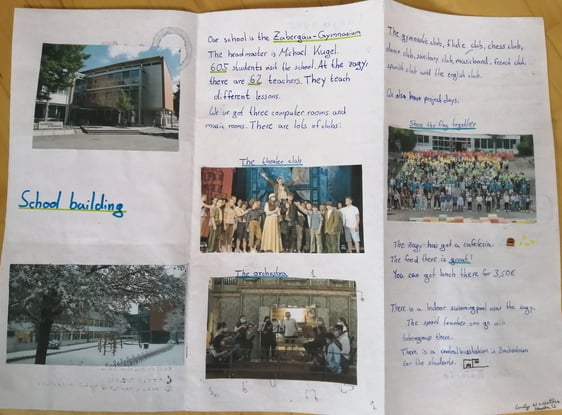 School building
Our school is the Zabergäu-Gymnasium
The headmaster is Michael Kugel.
605 students visit the school. At the zagy,
there are 62 teachers. They teach
different lessons.
We've got three computer rooms and
music rooms. There are lots of clubs:
The theater club
The orchestra
The gymnastic club, flute club, chess club,
dance club, sanitary club, music band, french club,
spanish club and the english club.
We also have project days:
Show the flag together
The zagy has got a cafeteria.
The food there is great!
You can get lunch there for 3,50€
There is a indoor swimming pool near the zagy.
The sport teacher can go with
there.
There is a central busstation in Brackenheim
for the students.
Emily